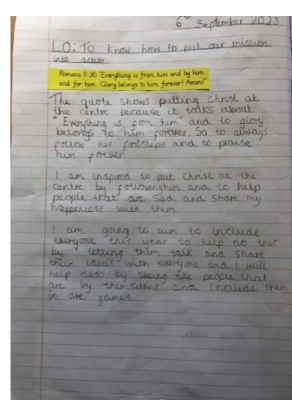 6th September 2023
LO: To know how to put our mission
into action.
Romans 11:36 "Everything is from him and by him
and for him. Glory belongs to him forever! Amen!"
The quote shows putting Christ at
the centre because it talks about
"Everything is from him" and to glory
belongs to him forever. So to always
follow his footsteps and to praise
him forever
I am inspired to put Christ at the
centre by following him and to help
people that are sad and share my
happiness with them.
I am going to aim to include
everyone this year to help do this
by letting them talk and share
their ideas with everyone and I will
help also by seeing the people that
are by themselves and include them
in are games.